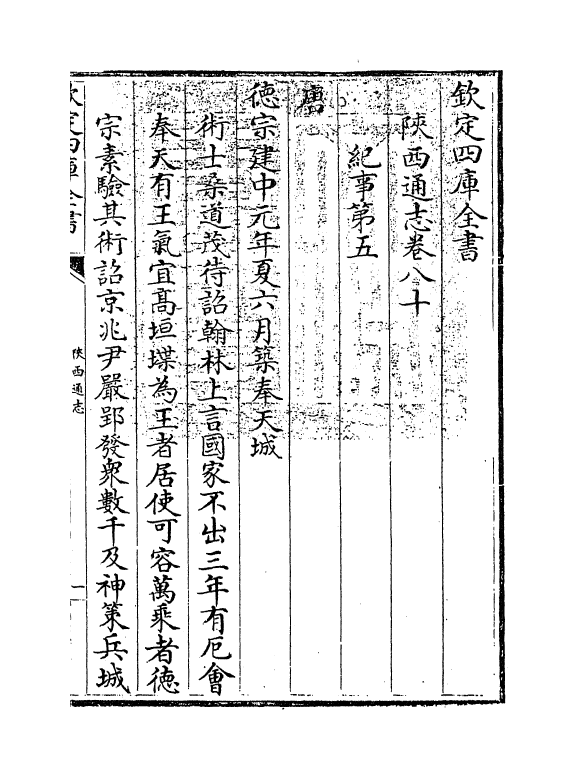 欽定四庫全書
陜西通志卷八十
紀事第五
唐
德宗建中元年夏六月築奉天城
術士桑道茂待詔翰林上言國家不出三年有厄會
奉天有王氣宜髙垣堞為王者居使可容萬乘者德
宗素驗其術詔京兆尹嚴郢發衆數千及神策兵城
欽定四庫全書
陜西通志
一